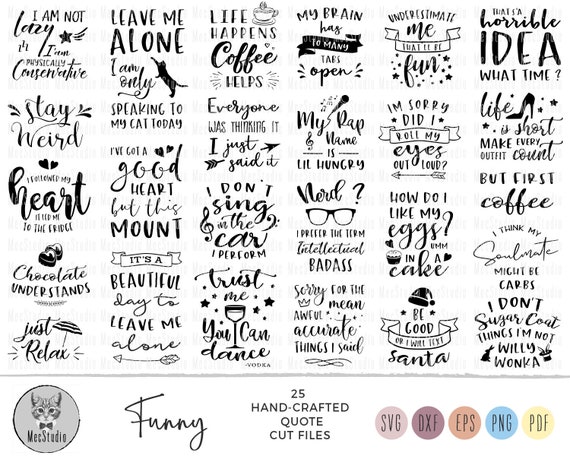 I AM NOT
Lazy
I am
PHYSICALLY
Conservative
stay
Weird
I FOLLOWED MY
heart
IT LED ME
TO THE FRIDGE
Chocolate
UNDERSTANDS
just
Relax
LEAVE ME
ALONE
I am
only
SPEAKING TO
MY CAT TODAY
I'VE GOT A
good
HEART
but this
MOUNT
IT'S A
BEAUTIFUL
day to
LEAVE ME
alone
LIFE
HAPPENS
Coffee
HELPS
Everyone
WAS THINKING IT
I just
said it
I DON'T
sing
in the
car
I PERFORM
trust
me
You Can
dance
-VODKA
MY BRAIN
HAS
TO MANY
TABS
open
My Rap
Name
IS
LIL HUNGRY
Nerd?
I PREFER THE TERM
Intellectual
BADASS
Sorry FOR THE
mean
AWFUL
accurate
THINGS I SAID
UNDERESTIMATE
me
THAT'LL BE
fun
IM SORRY
DID I
ROLL MY
eyes
OUT LOUD?
HOW DO I
LIKE MY
eggs?
UMM
IN A
cake
BE
GOOD
OR I WILL TEXT
Santa
THAT'S A
horrible
IDEA
WHAT TIME?
life
is Short
MAKE EVERY
OUTFIT count
BUT FIRST
coffee
I THINK MY
Soulmate
MIGHT BE
CARBS
I DON'T
Sugar Coat
THINGS I'M NOT
WILLY
WONKA
MecStudio
Funny
25
HAND-CRAFTED
QUOTE
CUT FILES
SVG
DXF
EPS
PNG
PDF